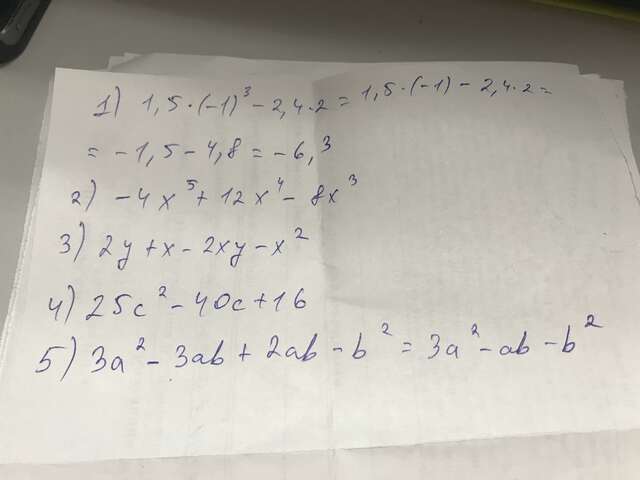 1) 1,5·(-1)³ - 2,4·2 = 1,5·(-1) - 2,4·2 =
= -1,5 - 4,8 = -6,3
2) -4x⁵ + 12x⁴ - 8x³
3) 2y + x - 2xy - x²
4) 25c² - 40c + 16
5) 3a² - 3ab + 2ab - b² = 3a² - ab - b²